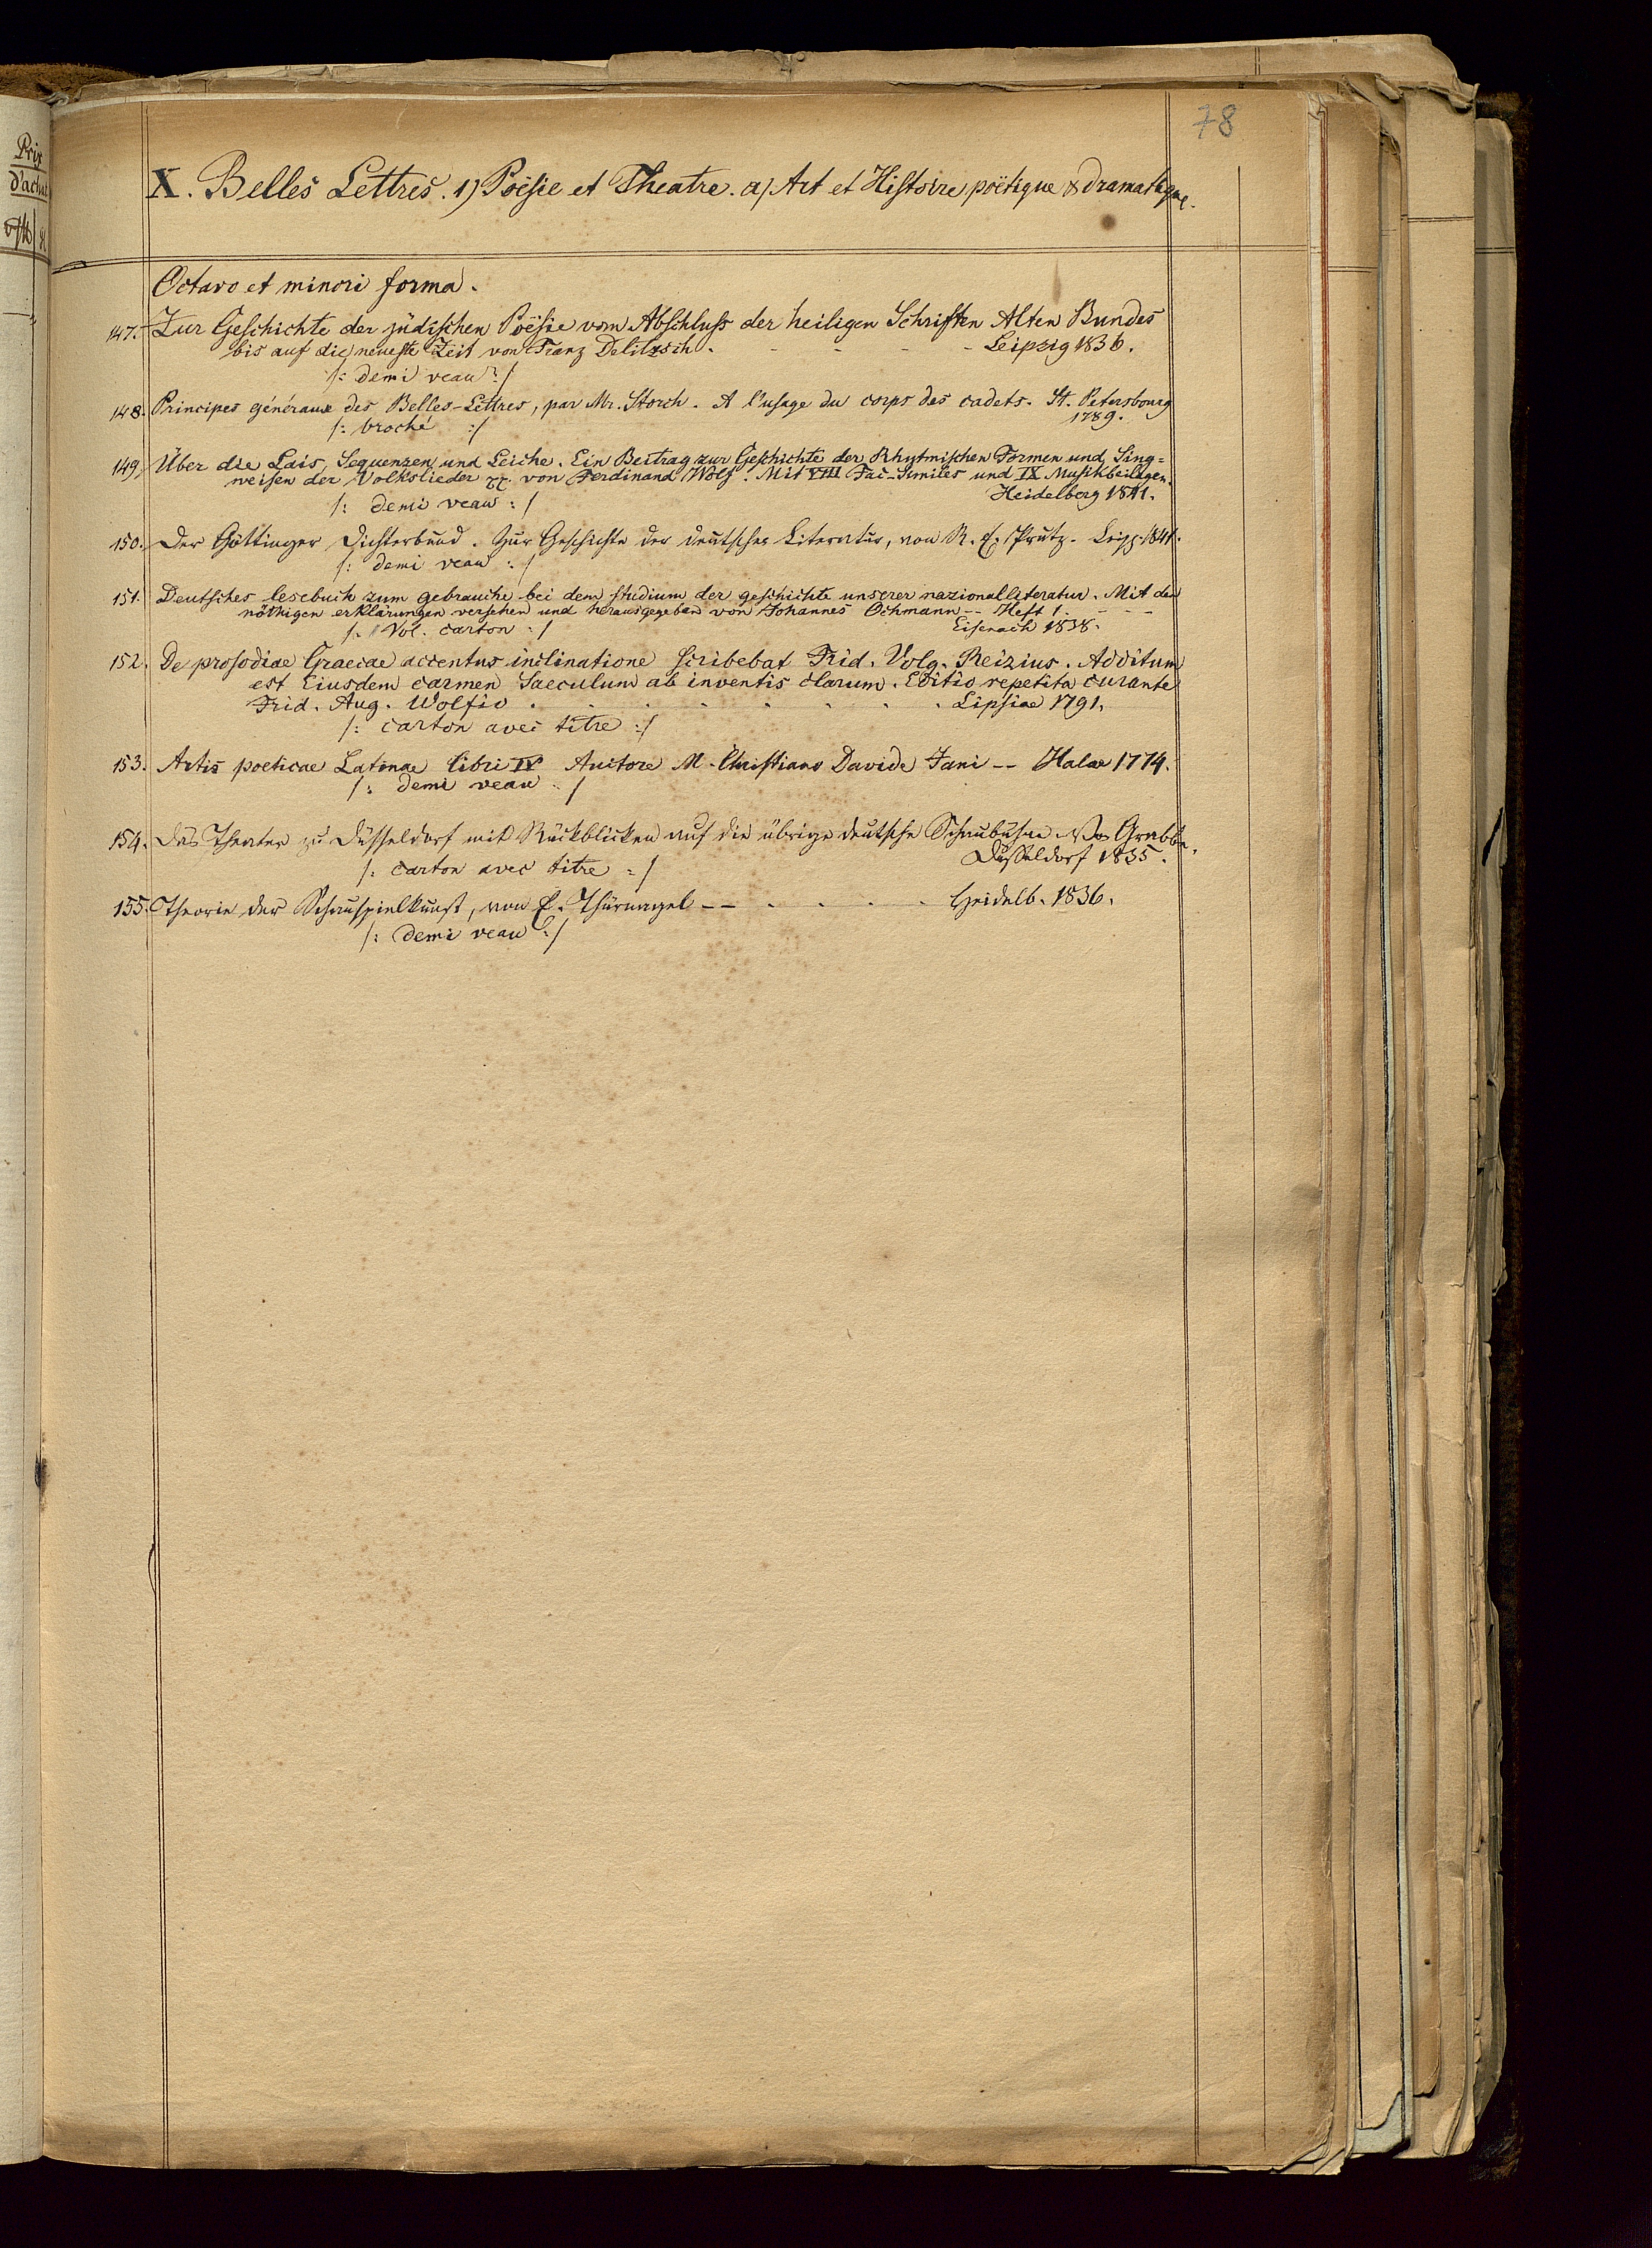 78
Prix
d'achat
X. Belles Lettres. 1) Poësie et Theatre. a) Art et Histoire poëtique & dramatique.
Octavo et minori forma.
147. Zur Geschichte der jüdischen Poësie vom Abschluss der heiligen Schriften Alten Bundes
bis auf die neueste Zeit von Franz Delitzsch. - - - - Leipzig 1836.
/: demi veau :/
148. Principes généraux des Belles-Lettres, par Mr. Storch. A l'usage du corps des cadets. St. Petersbourg
/: broché :/ 1789.
149. Über die Lais, Sequenzen und Leiche. Ein Beitrag zur Geschichte der Rhytmischen Formen und Sing=
weisen der Volkslieder von Ferdinand Wolf. Mit VIII Fac-Similes und IX Musikbeilagen.
/: demi veau :/ Heidelberg 1841.
150. Der Göttinger Dichterbund. Zur Geschichte der deutschen Literatur, von R. E. Prutz. Leipz. 1841.
/: demi veau :/
151. Deutsches lesebuch zum gebrauche bei dem studium der geschichte unserer nazionalliteratur. Mit den
nöthigen erklärungen versehen und herausgegeben von Johannes Ochmann -- Heft 1. - - -
/: 1 Vol. carton :/ Eisenach 1838.
152. De prosodiae Graecae accentus inclinatione scribebat Frid. Volg. Reizius. Additum
est Eiusdem carmen Saeculum ab inventis clarum. Editio repetita curante
Frid. Aug. Wolfio . . . . . . . . Lipsiae 1791.
/: carton avec titre :/
153. Artis poeticae Latinae libri IV Auctore M. Christiano Davide Jani -- Halae 1774.
/: demi veau :/
154. Das Theater zu Düsseldorf mit Rückblicken auf die übrige deutsche Schaubühne. Von Grabbe.
/: carton avec titre :/ Düsseldorf 1835.
155. Theorie der Schauspielkunst, von E. Thürnagel -- . . . . . Heidelb. 1836.
/: demi veau :/